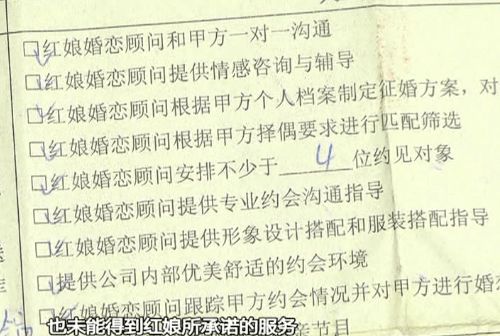 □红娘婚恋顾问和甲方一对一沟通
□红娘婚恋顾问提供情感咨询与辅导
□红娘婚恋顾问根据甲方个人档案制定征婚方案，对
□红娘婚恋顾问根据甲方择偶要求进行匹配筛选
□红娘婚恋顾问安排不少于 4 位约见对象
□红娘婚恋顾问提供专业约会沟通指导
□红娘婚恋顾问提供形象设计搭配和服装搭配指导
□提供公司内部优美舒适的约会环境
□红娘婚恋顾问跟踪甲方约会情况并对甲方进行婚恋
也未能得到红娘所承诺的服务
节目